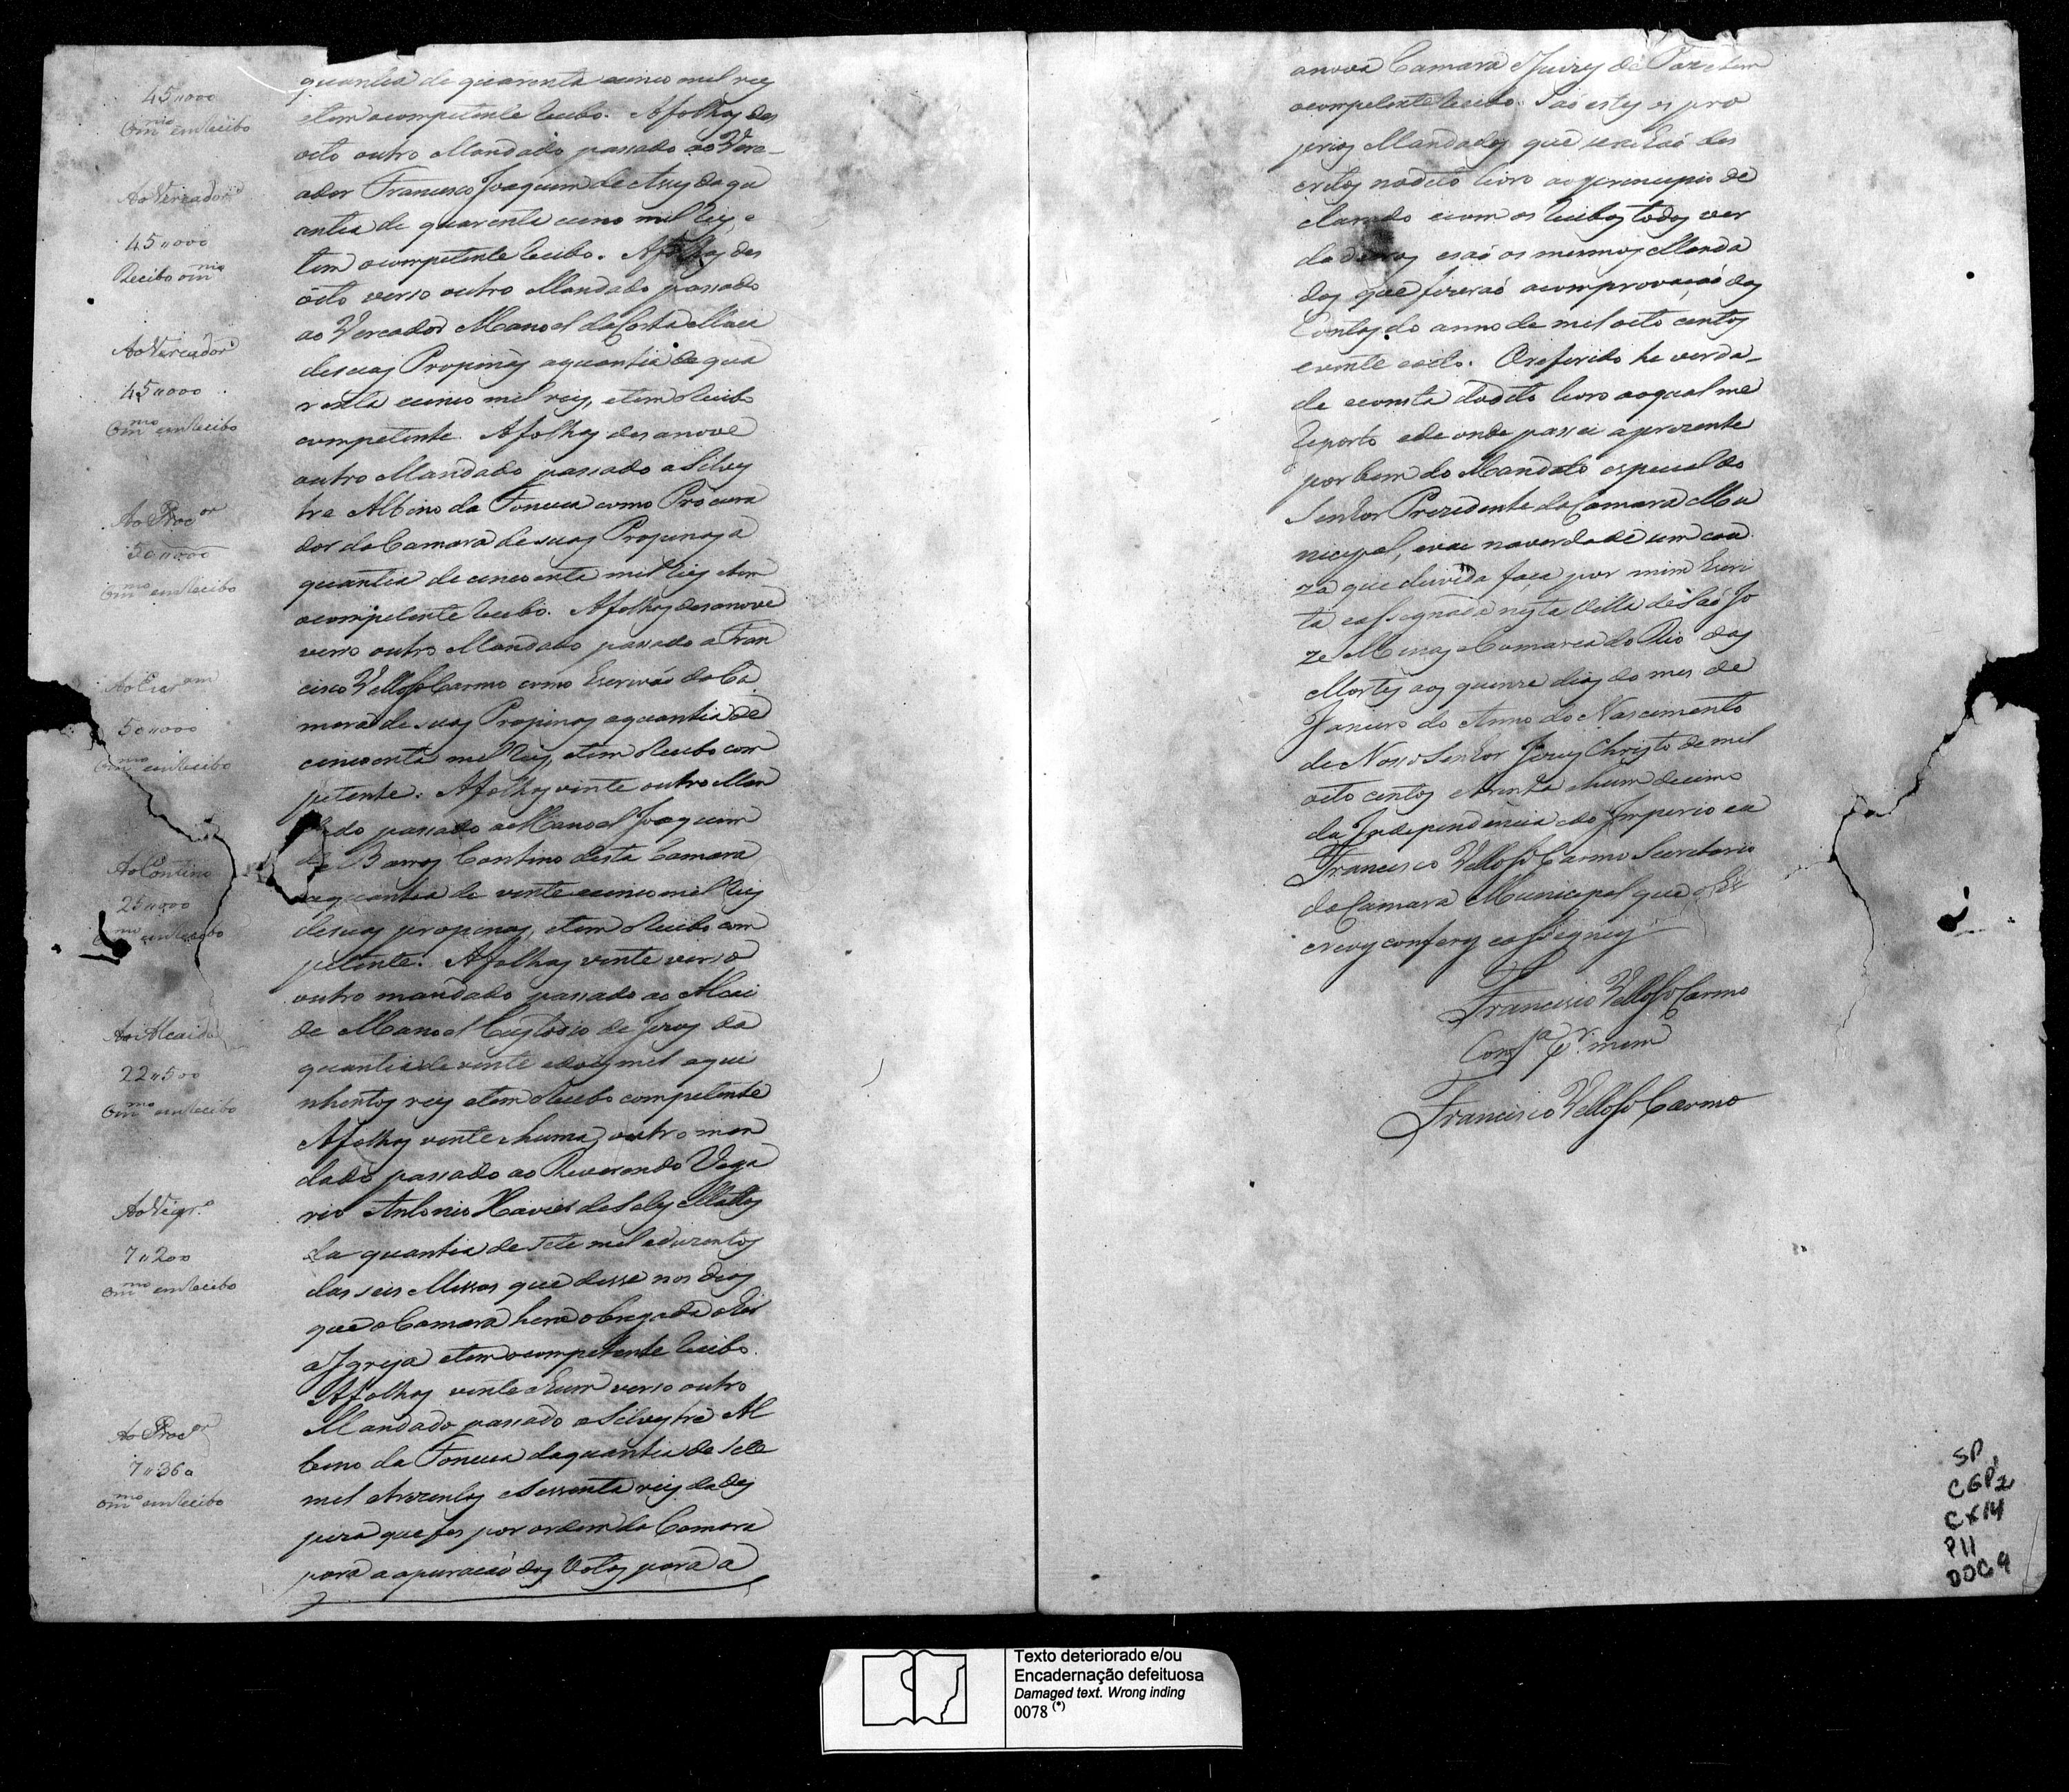 45"000
O m.mo em recibo
Ao Vereador
45"000
Recibo o m.mo
Ao Vereador
45"000
O m.mo em recibo
Ao Proc.or
50"000
O m.mo em recibo
Ao Escr.am
50"000
O m.mo em recibo
Ao Contino
25"000
O m.mo em recibo
Ao Alcaide
22"500
O m.mo em recibo
Ao Vigr.o
7"200
O m.mo em recibo
Ao Proc.or
7"360
O m.mo em recibo
quantia de quarenta e cinco mil reis
e tem o competente recibo. A folhas des
oito outro Mandado passado ao Vere-
ador Francisco Joaquim de Assis da qu
antia de quarenta e cinco mil reis, e
tem o competente recibo. A folhas des
oito verso outro Mandado passado
ao Vereador Manoel da Costa Maia
de suas Propinas a quantia de qua
renta e cinco mil reis, e tem o recibo
competente. A folhas desanove
outro Mandado passado a Silves
tre Albino da Fonseca como Procura
dor da Camara de suas Propinas a
quantia de cincoenta mil reis e tem
o competente recibo. A folhas desanove
verso outro Mandado passado a Fran
cisco Velloso Carmo como Escrivão da Ca
mara de suas Propinas a quantia de
cincoenta mil reis, e tem o recibo com
petente. A folhas vinte outro Man
dado passado a Manoel Joaquim
de Barros Contino desta Camara
a quantia de vinte e cinco mil reis
de suas propinas, e tem o recibo com
petente. A folhas vinte verso
outro mandado passado ao Alcai
de Manoel Custodio de Jesus da
quantia de vinte e dois mil e qui
nhentos reis e tem o recibo competente
A folhas vinte e huma, outro man
dado passado ao Reverendo Viga
rio Antonio Xavier de Sales Mattos
da quantia de sete mil e duzentos
das seis Missas que disse nos dias
que a Camara hera obrigada a hir
a Igreja e tem o competente recibo.
A folhas vinte e hum verso outro
Mandado passado a Silvestre Al
bino da Fonseca da quantia de sete
mil e trezentos e sessenta reis da des
peza que fes por ordem da Camara
para a apuracaõ dos Votos para a
a nova Camara e Juizes de Paz e tem
o competente recibo. Saõ estes os pro
prios Mandados que se achaõ des
critos no dito livro ao principio de
clarado e com os recibos todos ver
dadeiros e saõ os mesmos Manda
dos que fizeraõ a comprovaçaõ das
Contas do anno de mil oito centos
e vinte e oito. O referido he verda-
de e consta do dito livro ao qual me
reporto e de onde passei a prezente
por bem do Mandato especial do
Senhor Prezidente da Camara Mu
nicipal, e vai na verdade sem cou
za que duvida faça por mim Escri
ta e assignada nesta Villa de Saõ Jo
ze Minas e Comarca do Rio das
Mortes aos quinze dias do mes de
Janeiro do Anno do Nascimento
de Nosso Senhor Jezus Christo de mil
oito centos e trinta e hum decimo
da Independencia e do Imperio eu
Francisco Vellozo Carmo Secretario
da Camara Municipal que o Es
crevy confery e assigney
Francisco Vellozo Carmo
Conf.a P.r mim
Francisco Vellozo Carmo
SP
CGP1
CX14
P11
DOC9
Texto deteriorado e/ou
Encadernação defeituosa
Damaged text. Wrong inding
0078 (*)